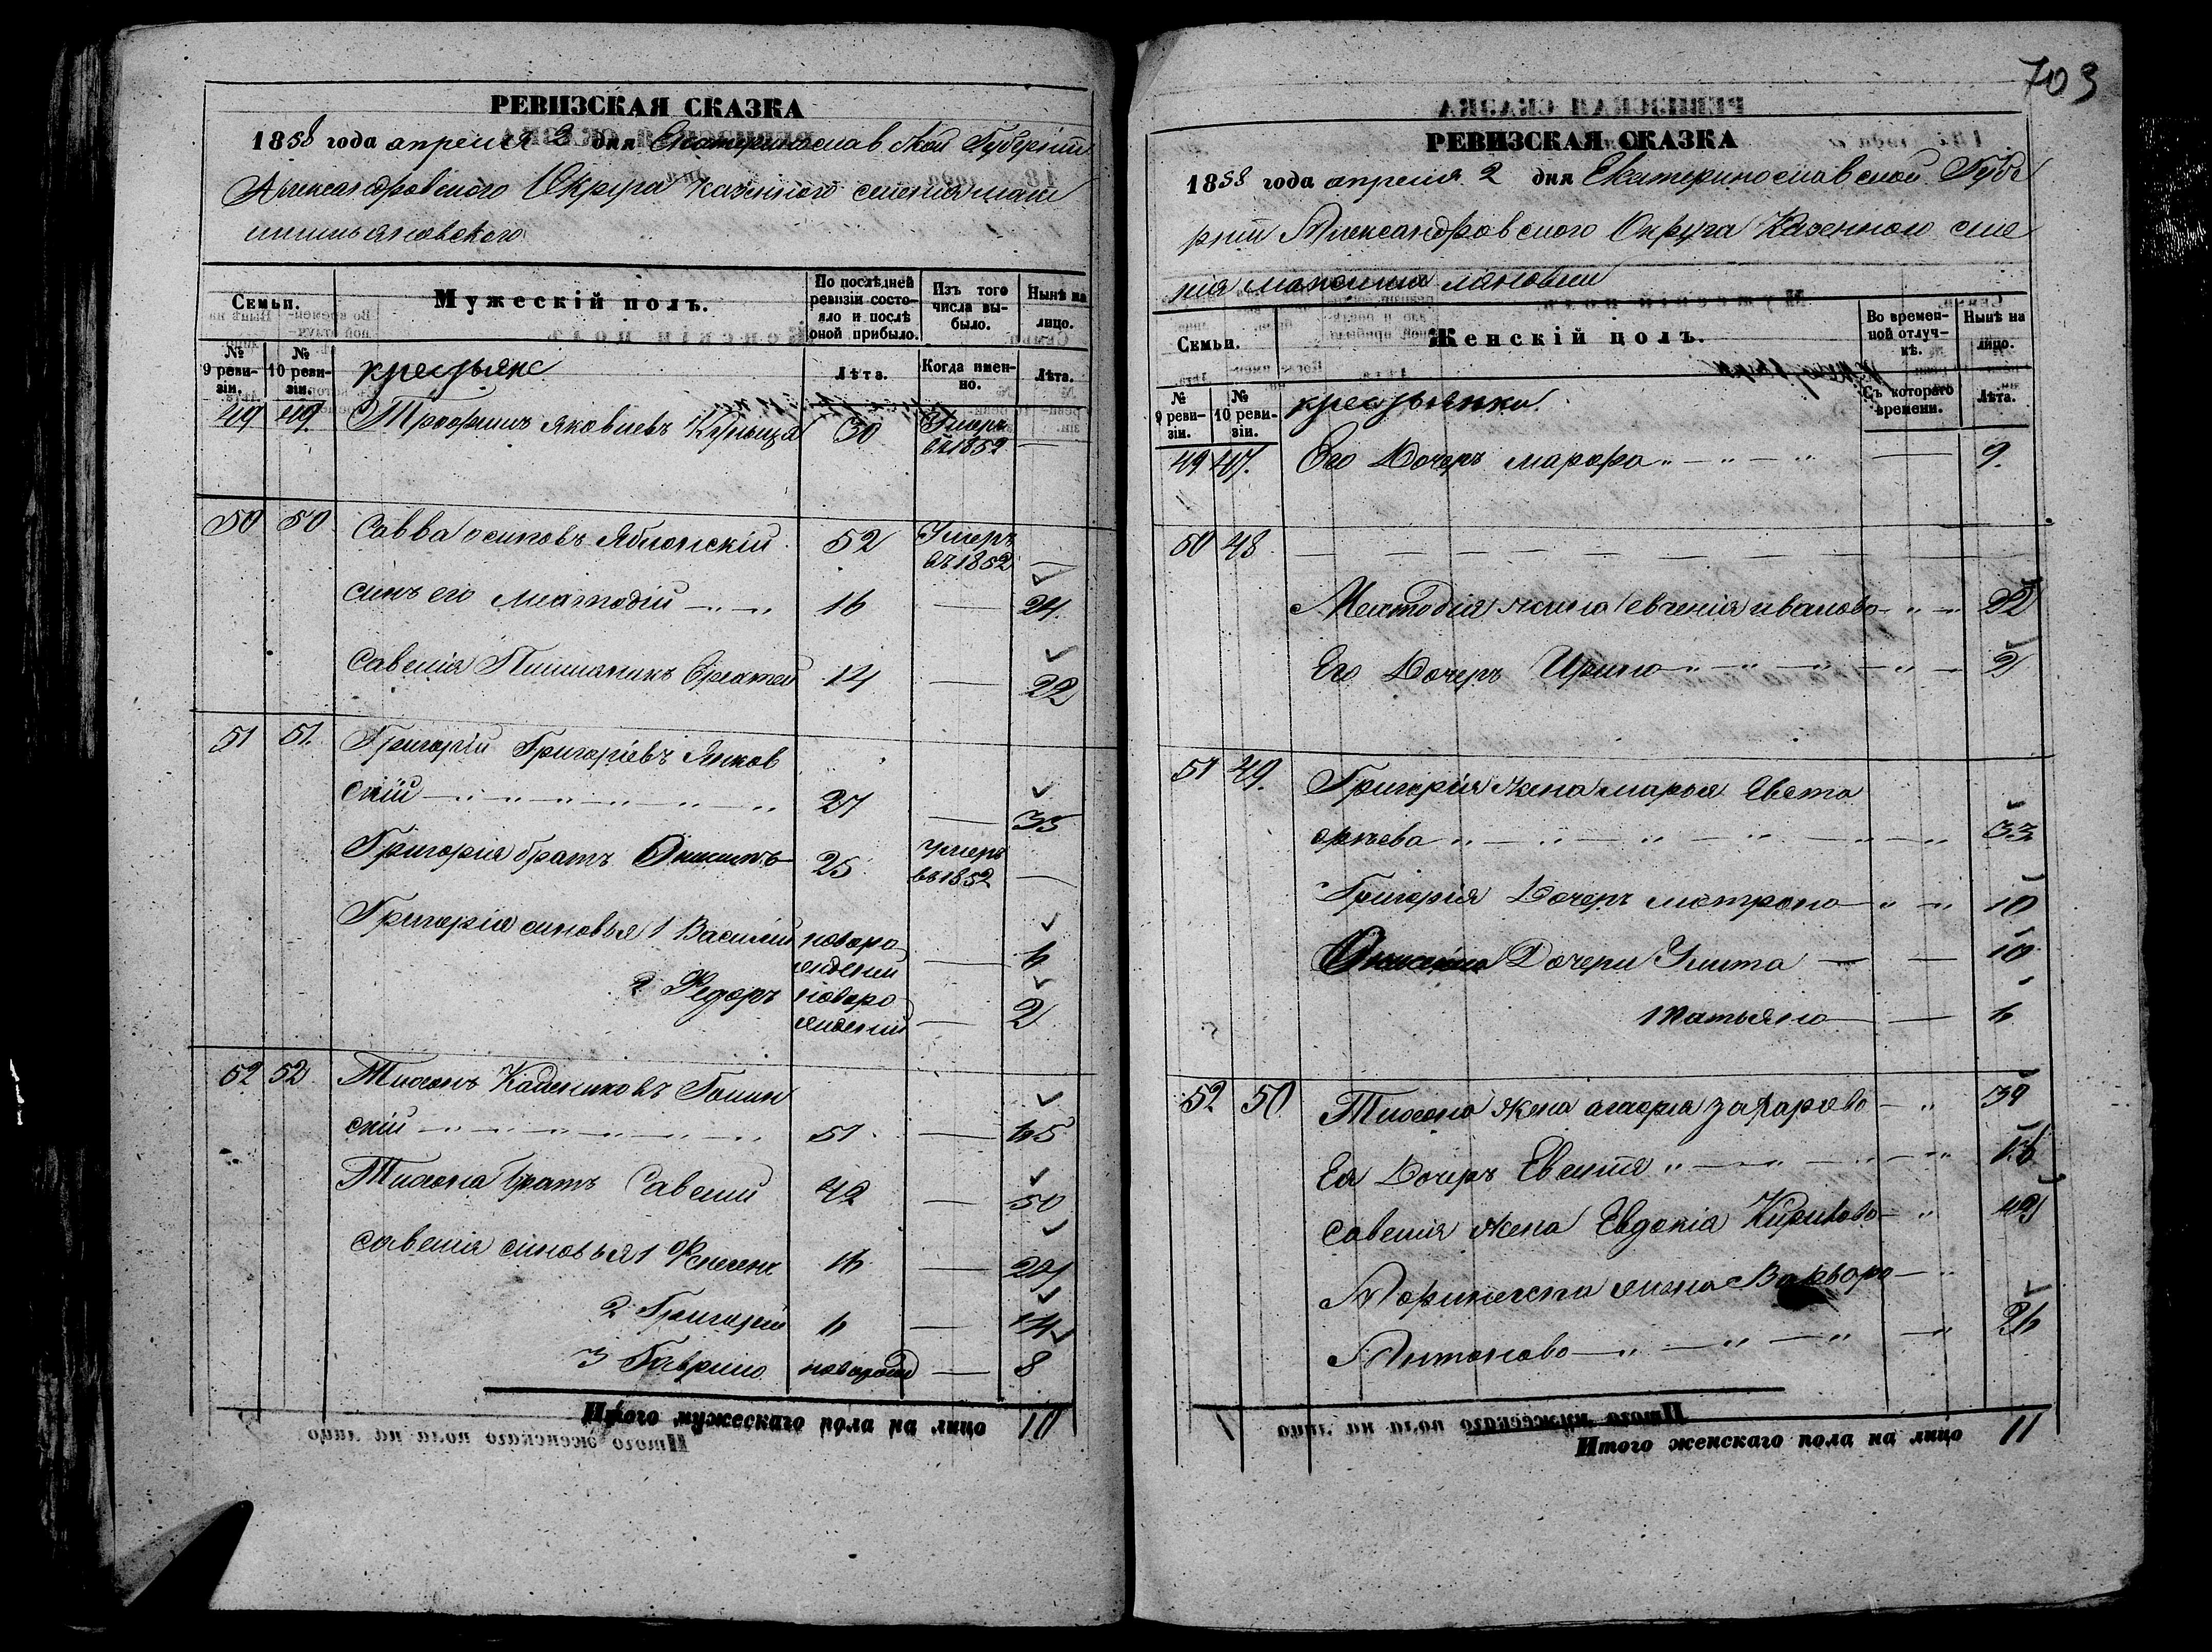 РЕВИЗСКАЯ СКАЗКА
1858 года апреля 2 дня Екатеринославской Губерніи
Александровскаго Округа казеннаго селенія
Семьи.
Мужескій полъ.
По послѣдней ревизіи состояло и послѣ оной прибыло.
Изъ того числа выбыло.
Нынѣ на лицо.
№ 9 ревизіи.
№ 10 ревизіи.
крестьяне
Лѣта.
Когда именно.
Лѣта.
49 49 Трофимъ Яковлевъ 30 Умеръ въ 1852 —
50 50 Савва осиповъ Яблонскій 52 Умеръ въ 1852 —
синъ его 16 — 24
Савелія 14 — 22
51 51. Григорій Григоріевъ Янков
скій 27 — 35
Григорія братъ Онисимъ 25 умеръ въ 1852 —
Григорія синовья 1 Василій новорожденій — 6
2 Федоръ новорожденій — 2
52 52 Тихонъ
скій 51 —
Тихона братъ Савелий 42 — 50
Савелія синовья 1 16 — 24
2 Григорій 6 — 14
3 Гаврило новорожд — 8
Итого мужескаго пола на лицо 10
703
РЕВИЗСКАЯ СКАЗКА
1858 года апреля 2 дня Екатеринославской Губе
рніи Александровского Округа Казенного селе
нія
Семьи.
Женскій полъ.
Во временной отлучкѣ.
Нынѣ на лицо.
№ 9 ревизіи.
№ 10 ревизіи.
крестьянки.
Съ котораго времени.
Лѣта.
49 47. Его Дочеръ марфа — 9.
50 48
жена евгенія иванова 22
Его Дочеръ Ирина 2
51 49. Григорія жена марья Евста
фьева 33
Григорія Дочеръ 10
Дочери Улита — — 10
татьяна — — 6
52 50 Тихона жена захарова 39
Ея Дочеръ
Савелія жена Евдокія Кирилова
жена Варвара
Антонова 26
Итого женскаго пола на лицо 11